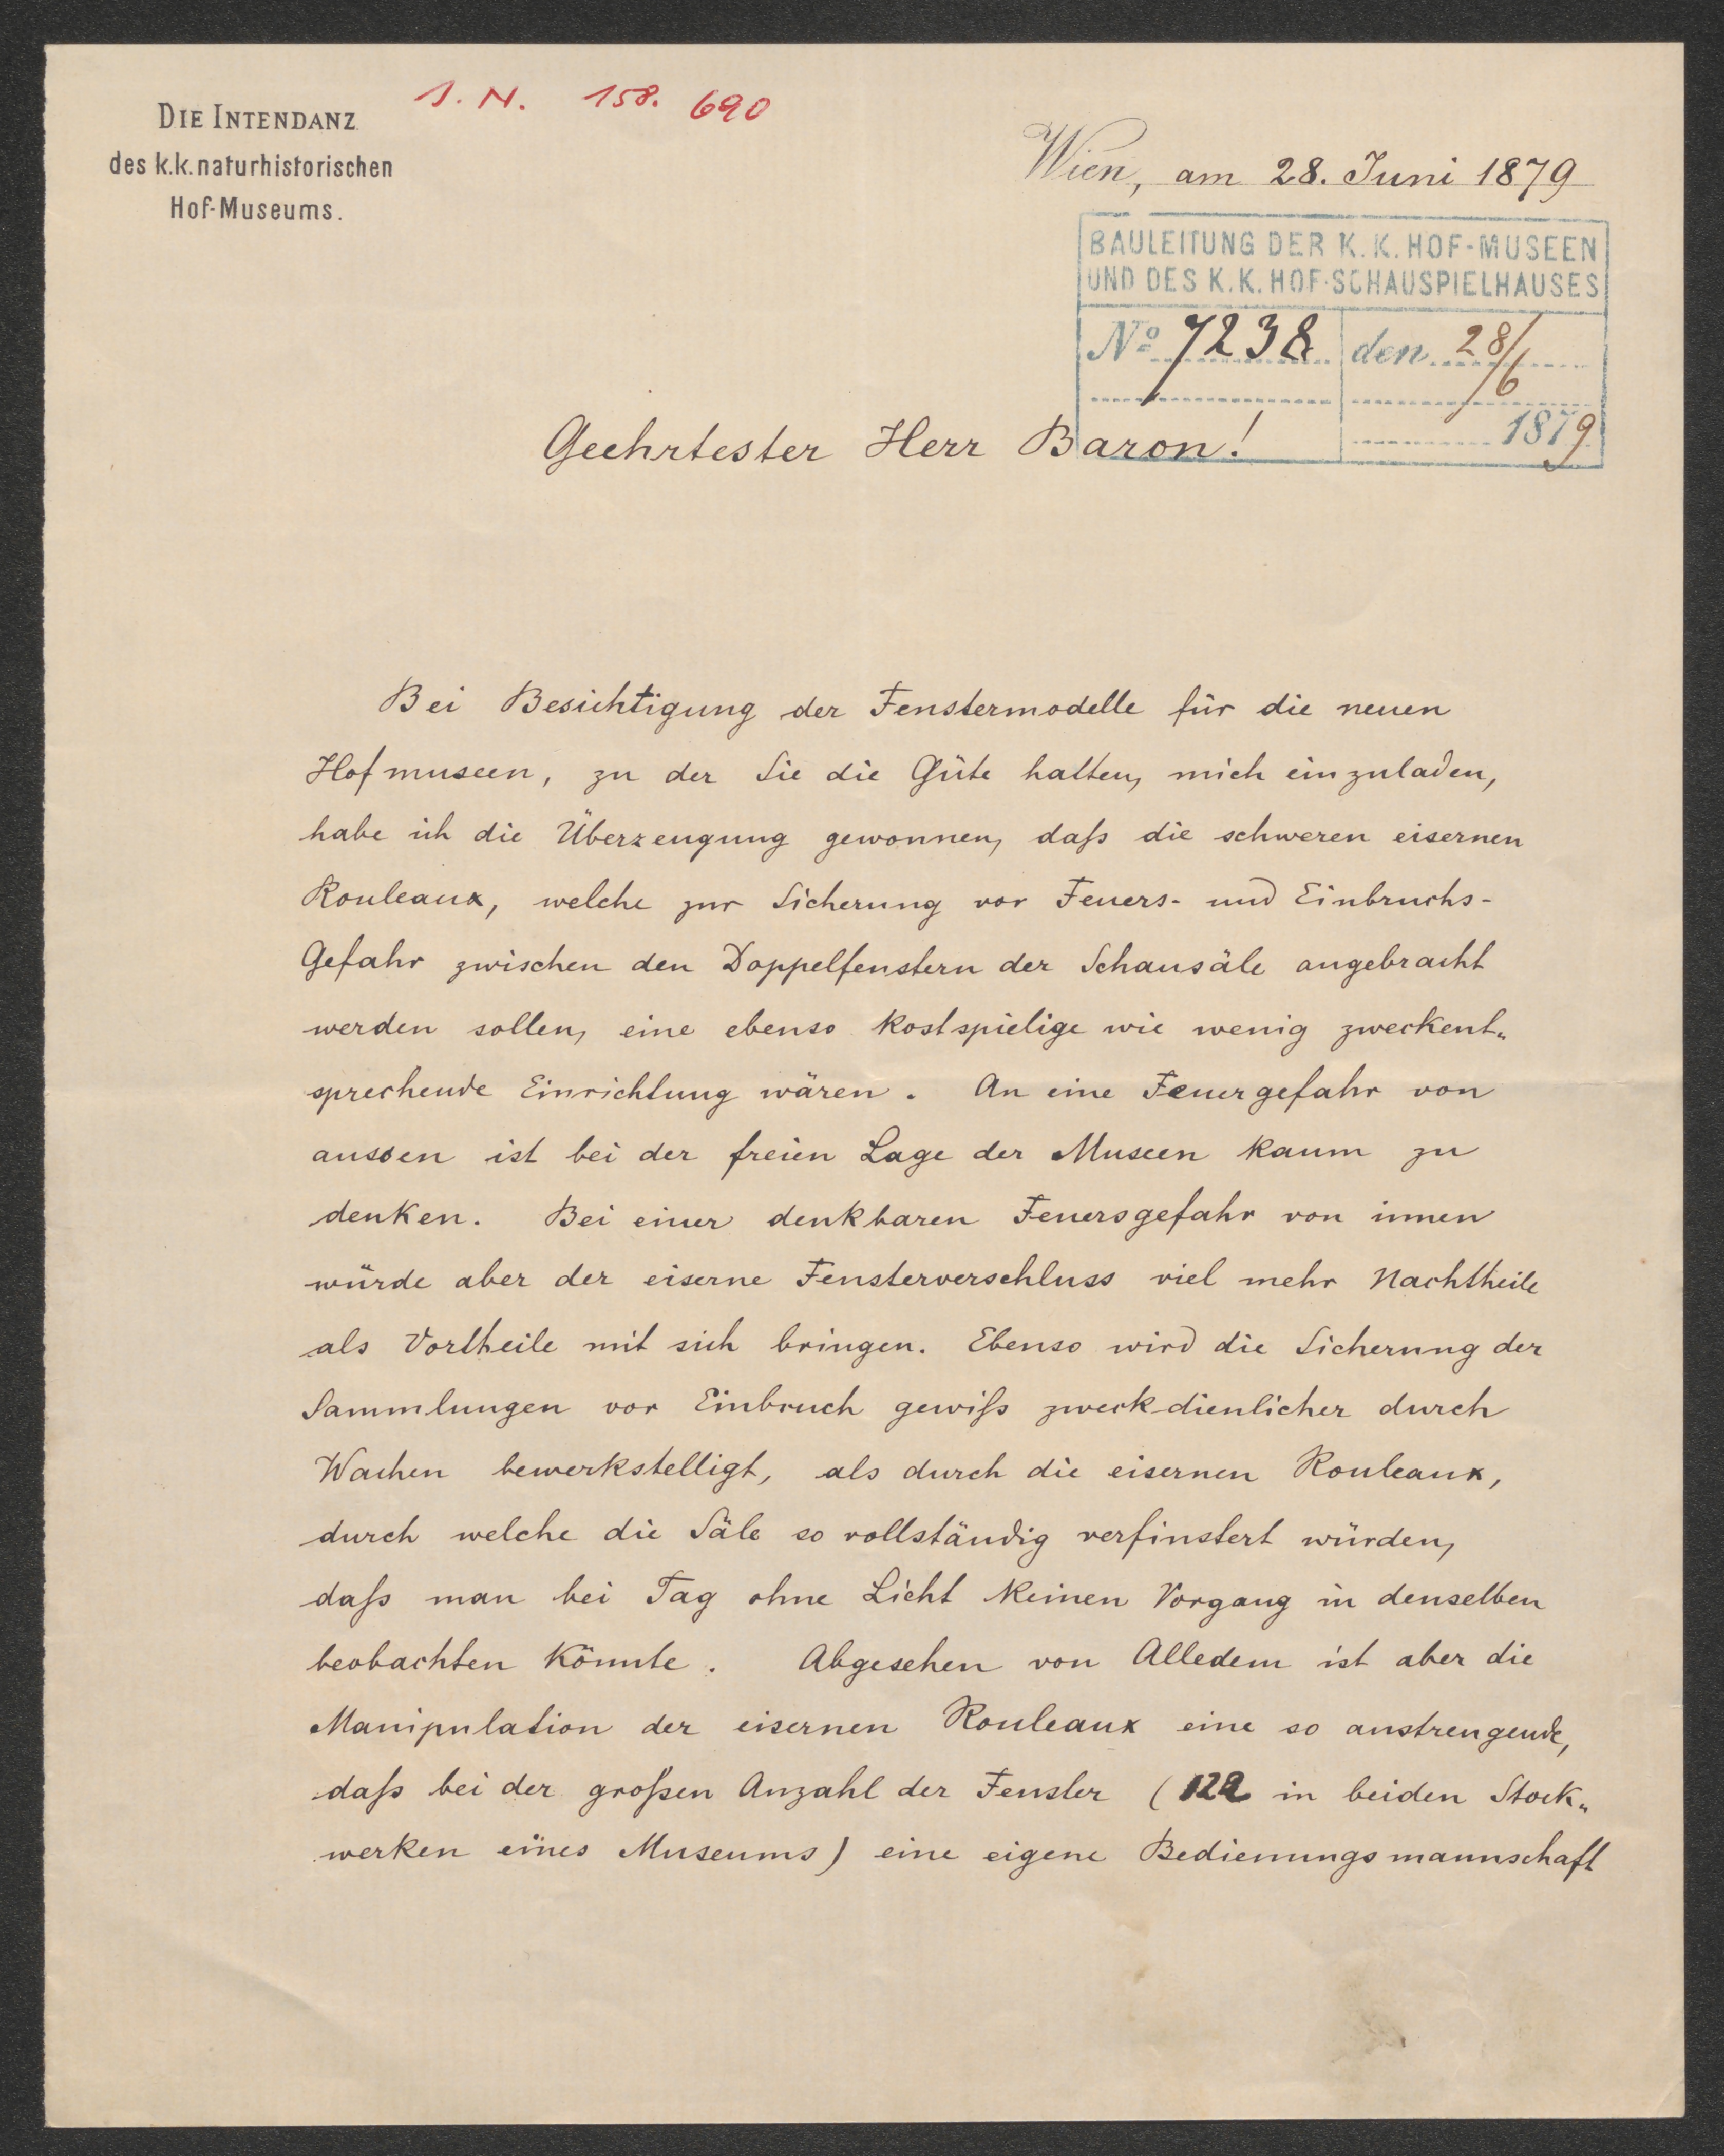 DIE INTENDANZ
des k.k. naturhistorischen
Hof-Museums.
J. N. 158. 690
Wien, am 28. Juni 1879
BAULEITUNG DER K. K. HOF-MUSEEN
UND DES K. K. HOF-SCHAUSPIELHAUSES
No 7238 den 28/6
1879
Geehrtester Herr Baron!
Bei Besichtigung der Fenstermodelle für die neuen
Hofmuseen, zu der Sie die Güte hatten, mich einzuladen,
habe ich die Überzeugung gewonnen, daſs die schweren eisernen
Rouleaux, welche zur Sicherung vor Feuers- und Einbruchs-
Gefahr zwischen den Doppelfenstern der Schausäle angebracht
werden sollen, eine ebenso kostspielige wie wenig zweckent„
sprechende Einrichtung wären. An eine Feuergefahr von
aussen ist bei der freien Lage der Museen kaum zu
denken. Bei einer denkbaren Feuersgefahr von innen
würde aber der eiserne Fensterverschluss viel mehr Nachtheile
als Vortheile mit sich bringen. Ebenso wird die Sicherung der
Sammlungen vor Einbruch gewiſs zweckdienlicher durch
Wachen bewerkstelligt, als durch die eisernen Rouleaux,
durch welche die Säle so vollständig verfinstert würden,
daſs man bei Tag ohne Licht keinen Vorgang in denselben
beobachten könnte. Abgesehen von Alledem ist aber die
Manipulation der eisernen Rouleaux eine so anstrengende,
daſs bei der groſsen Anzahl der Fenster (122 in beiden Stock„
werken eines Museums) eine eigene Bedienungsmannschaft